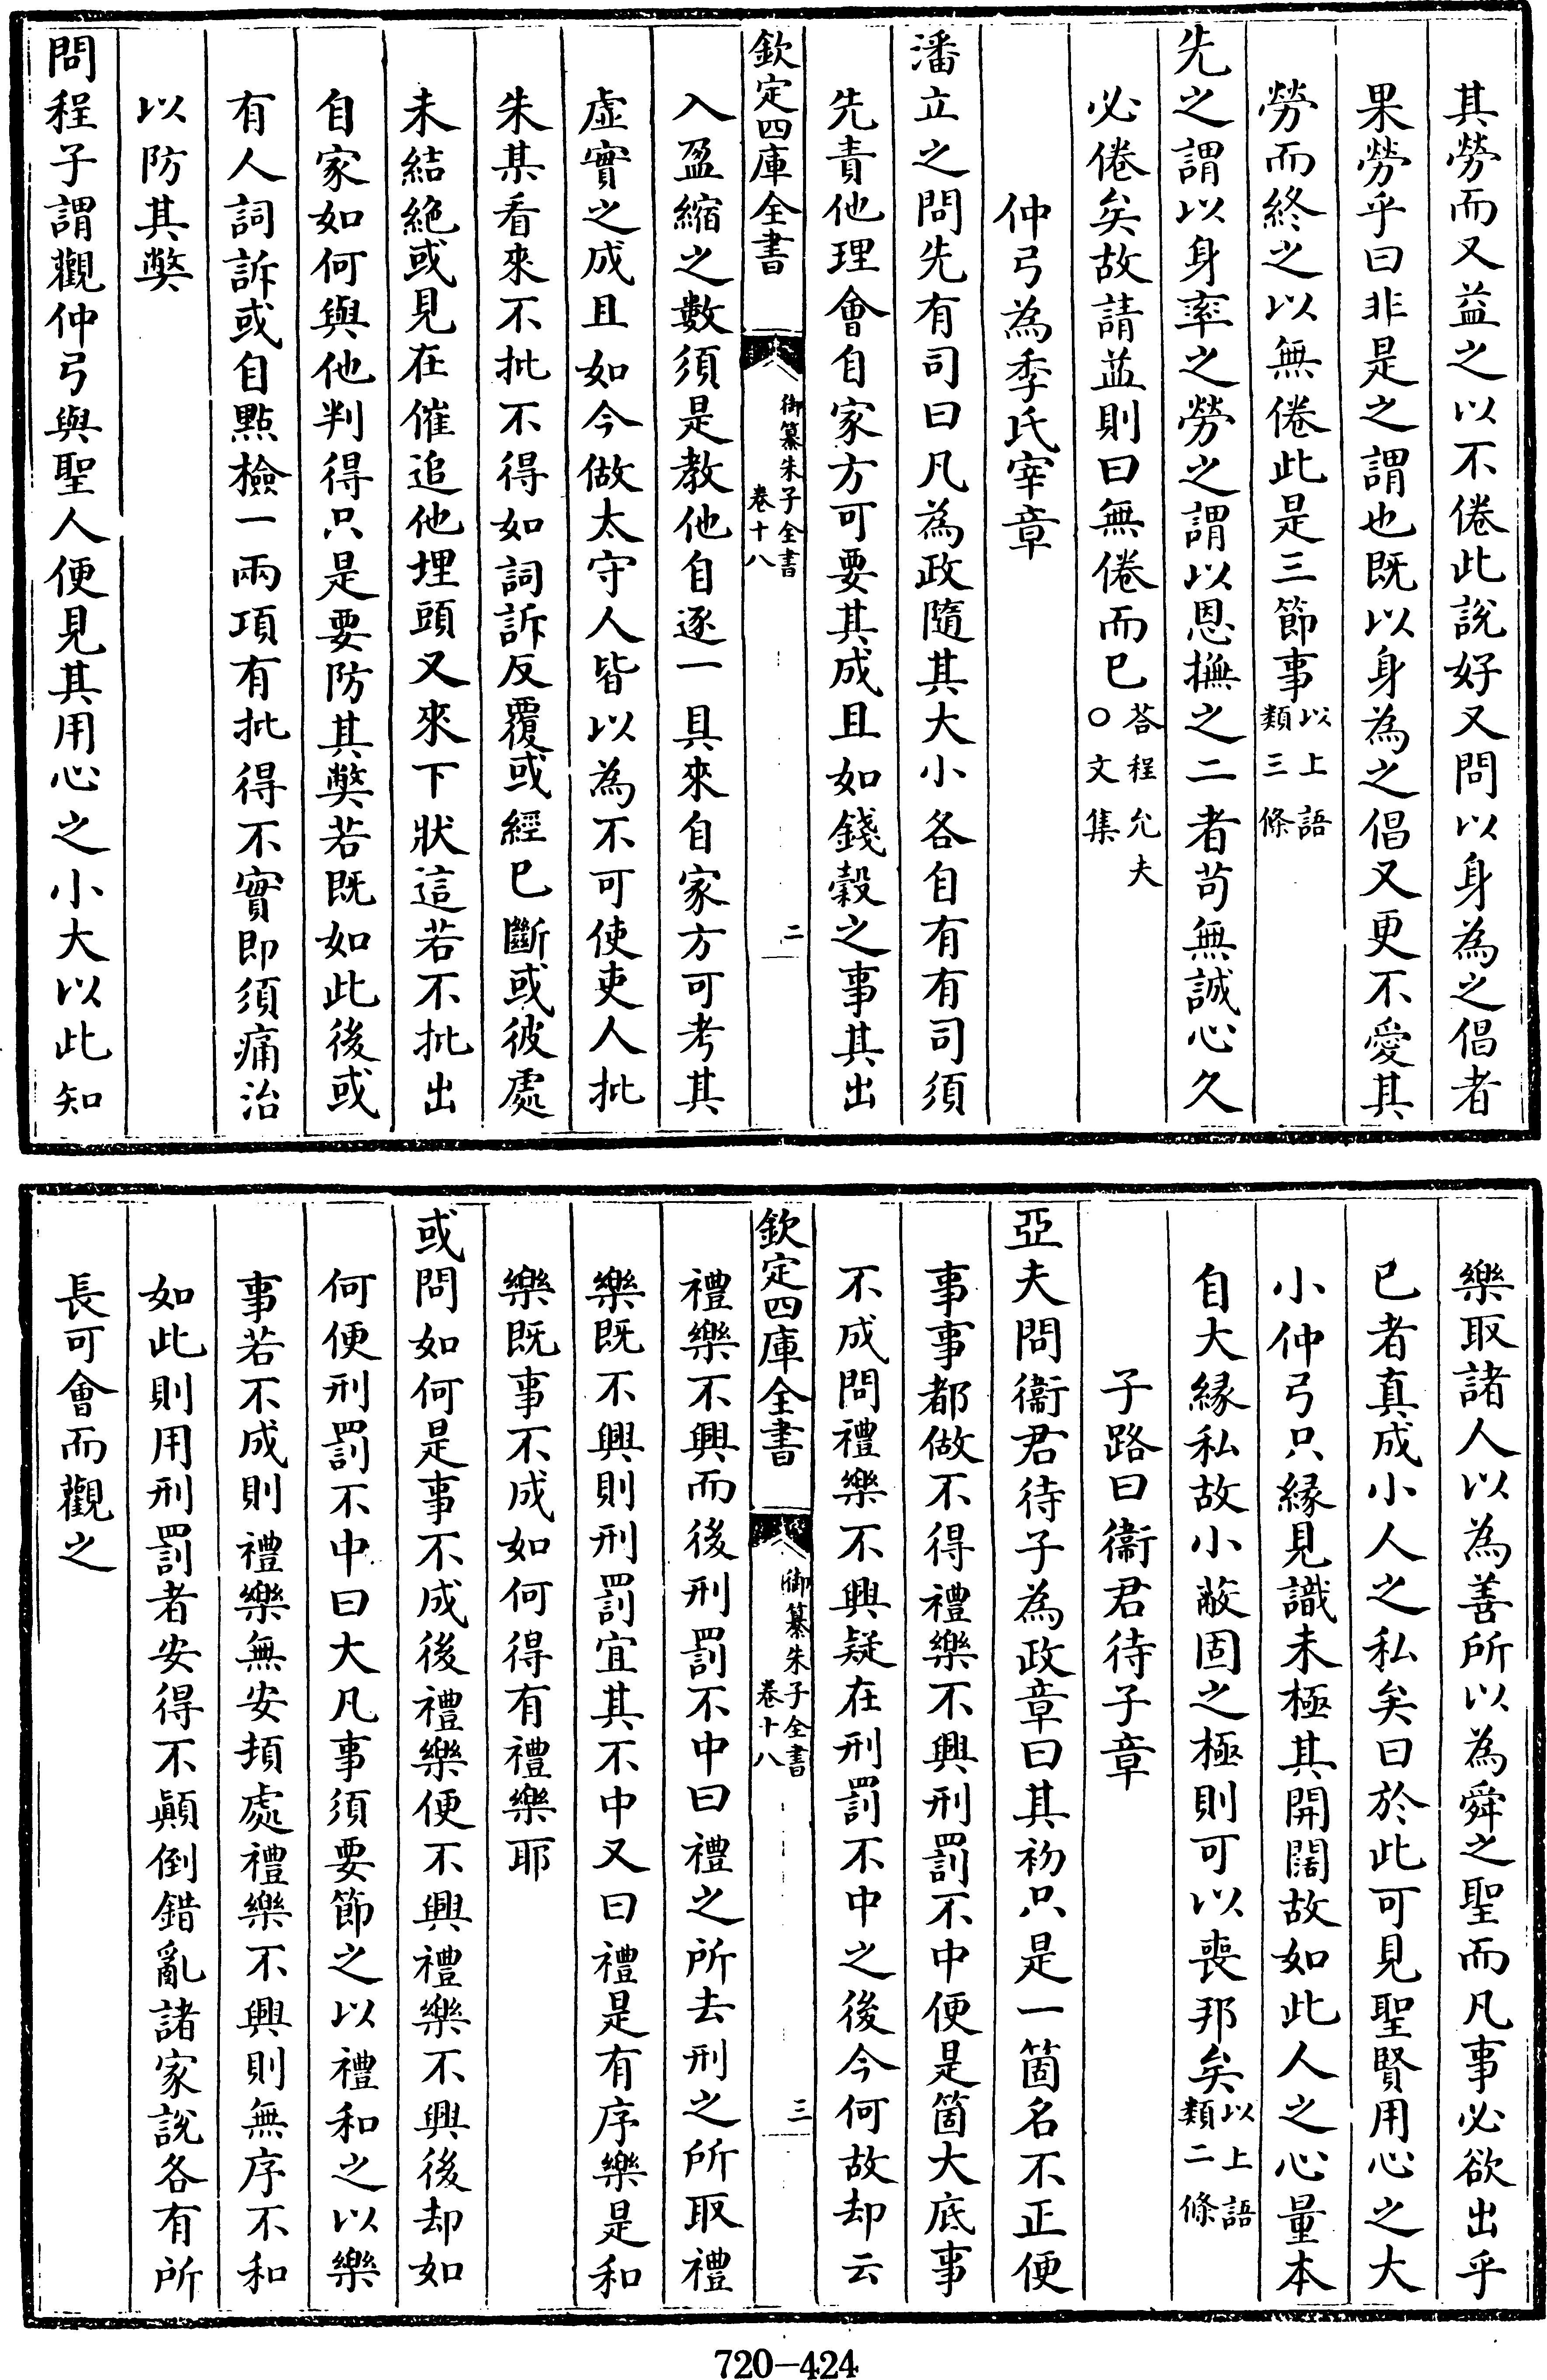 其勞而又益之以不倦此說好又問以身為之倡者
果勞乎曰非是之謂也既以身為之倡又更不愛其
勞而終之以無倦此是三節事以上語類三條
先之謂以身率之勞之謂以恩撫之二者苟無誠心久
必倦矣故請益則曰無倦而已答程允夫○文集
仲弓為季氏宰章
潘立之問先有司曰凡為政隨其大小各自有有司須
先責他理會自家方可要其成且如錢穀之事其出
欽定四庫全書 御纂朱子全書卷十八 二
入盈縮之數須是教他自逐一具來自家方可考其
虛實之成且如今做太守人皆以為不可使吏人批
朱某看來不批不得如詞訴反覆或經已斷或彼處
未結絕或見在催追他埋頭又來下狀這若不批出
自家如何與他判得只是要防其弊若既如此後或
有人詞訴或自點檢一兩項有批得不實即須痛治
以防其弊
問程子謂觀仲弓與聖人便見其用心之小大以此知
樂取諸人以為善所以為舜之聖而凡事必欲出乎
已者真成小人之私矣曰於此可見聖賢用心之大
小仲弓只緣見識未極其開闊故如此人之心量本
自大緣私故小蔽固之極則可以喪邦矣以上語類二條
子路曰衞君待子章
亞夫問衞君待子為政章曰其初只是一箇名不正便
事事都做不得禮樂不興刑罰不中便是箇大底事
不成問禮樂不興疑在刑罰不中之後今何故却云
欽定四庫全書 御纂朱子全書卷十八 三
禮樂不興而後刑罰不中曰禮之所去刑之所取禮
樂既不興則刑罰宜其不中又曰禮是有序樂是和
樂既事不成如何得有禮樂耶
或問如何是事不成後禮樂便不興禮樂不興後却如
何便刑罰不中曰大凡事須要節之以禮和之以樂
事若不成則禮樂無安頓處禮樂不興則無序不和
如此則用刑罰者安得不顛倒錯亂諸家說各有所
長可會而觀之
720-424